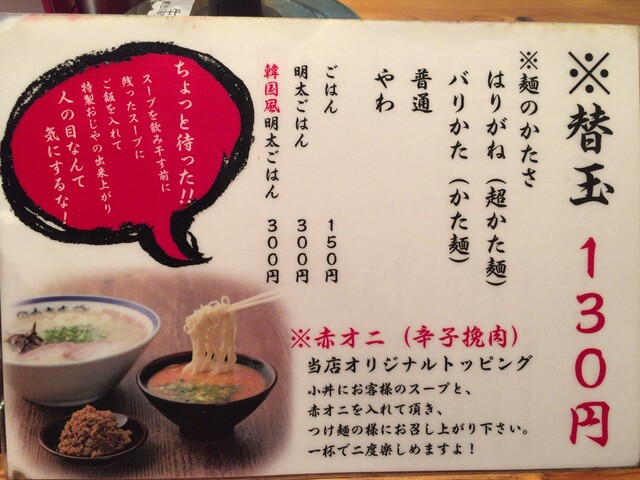 ※替玉 130円
※麺のかたさ
はりがね(超かた麺)
バリかた(かた麺)
普通
やわ
ごはん 150円
明太ごはん 300円
韓国風明太ごはん 300円
ちょっと待った!!
スープを飲み干す前に
残ったスープに
ご飯を入れて
特製おじやの出来上がり
人の目なんて
気にするな!
※赤オニ(辛子挽肉)
当店オリジナルトッピング
小丼にお客様のスープと、
赤オニを入れて頂き、
つけ麺の様にお召し上がり下さい。
一杯で二度楽しめますよ!